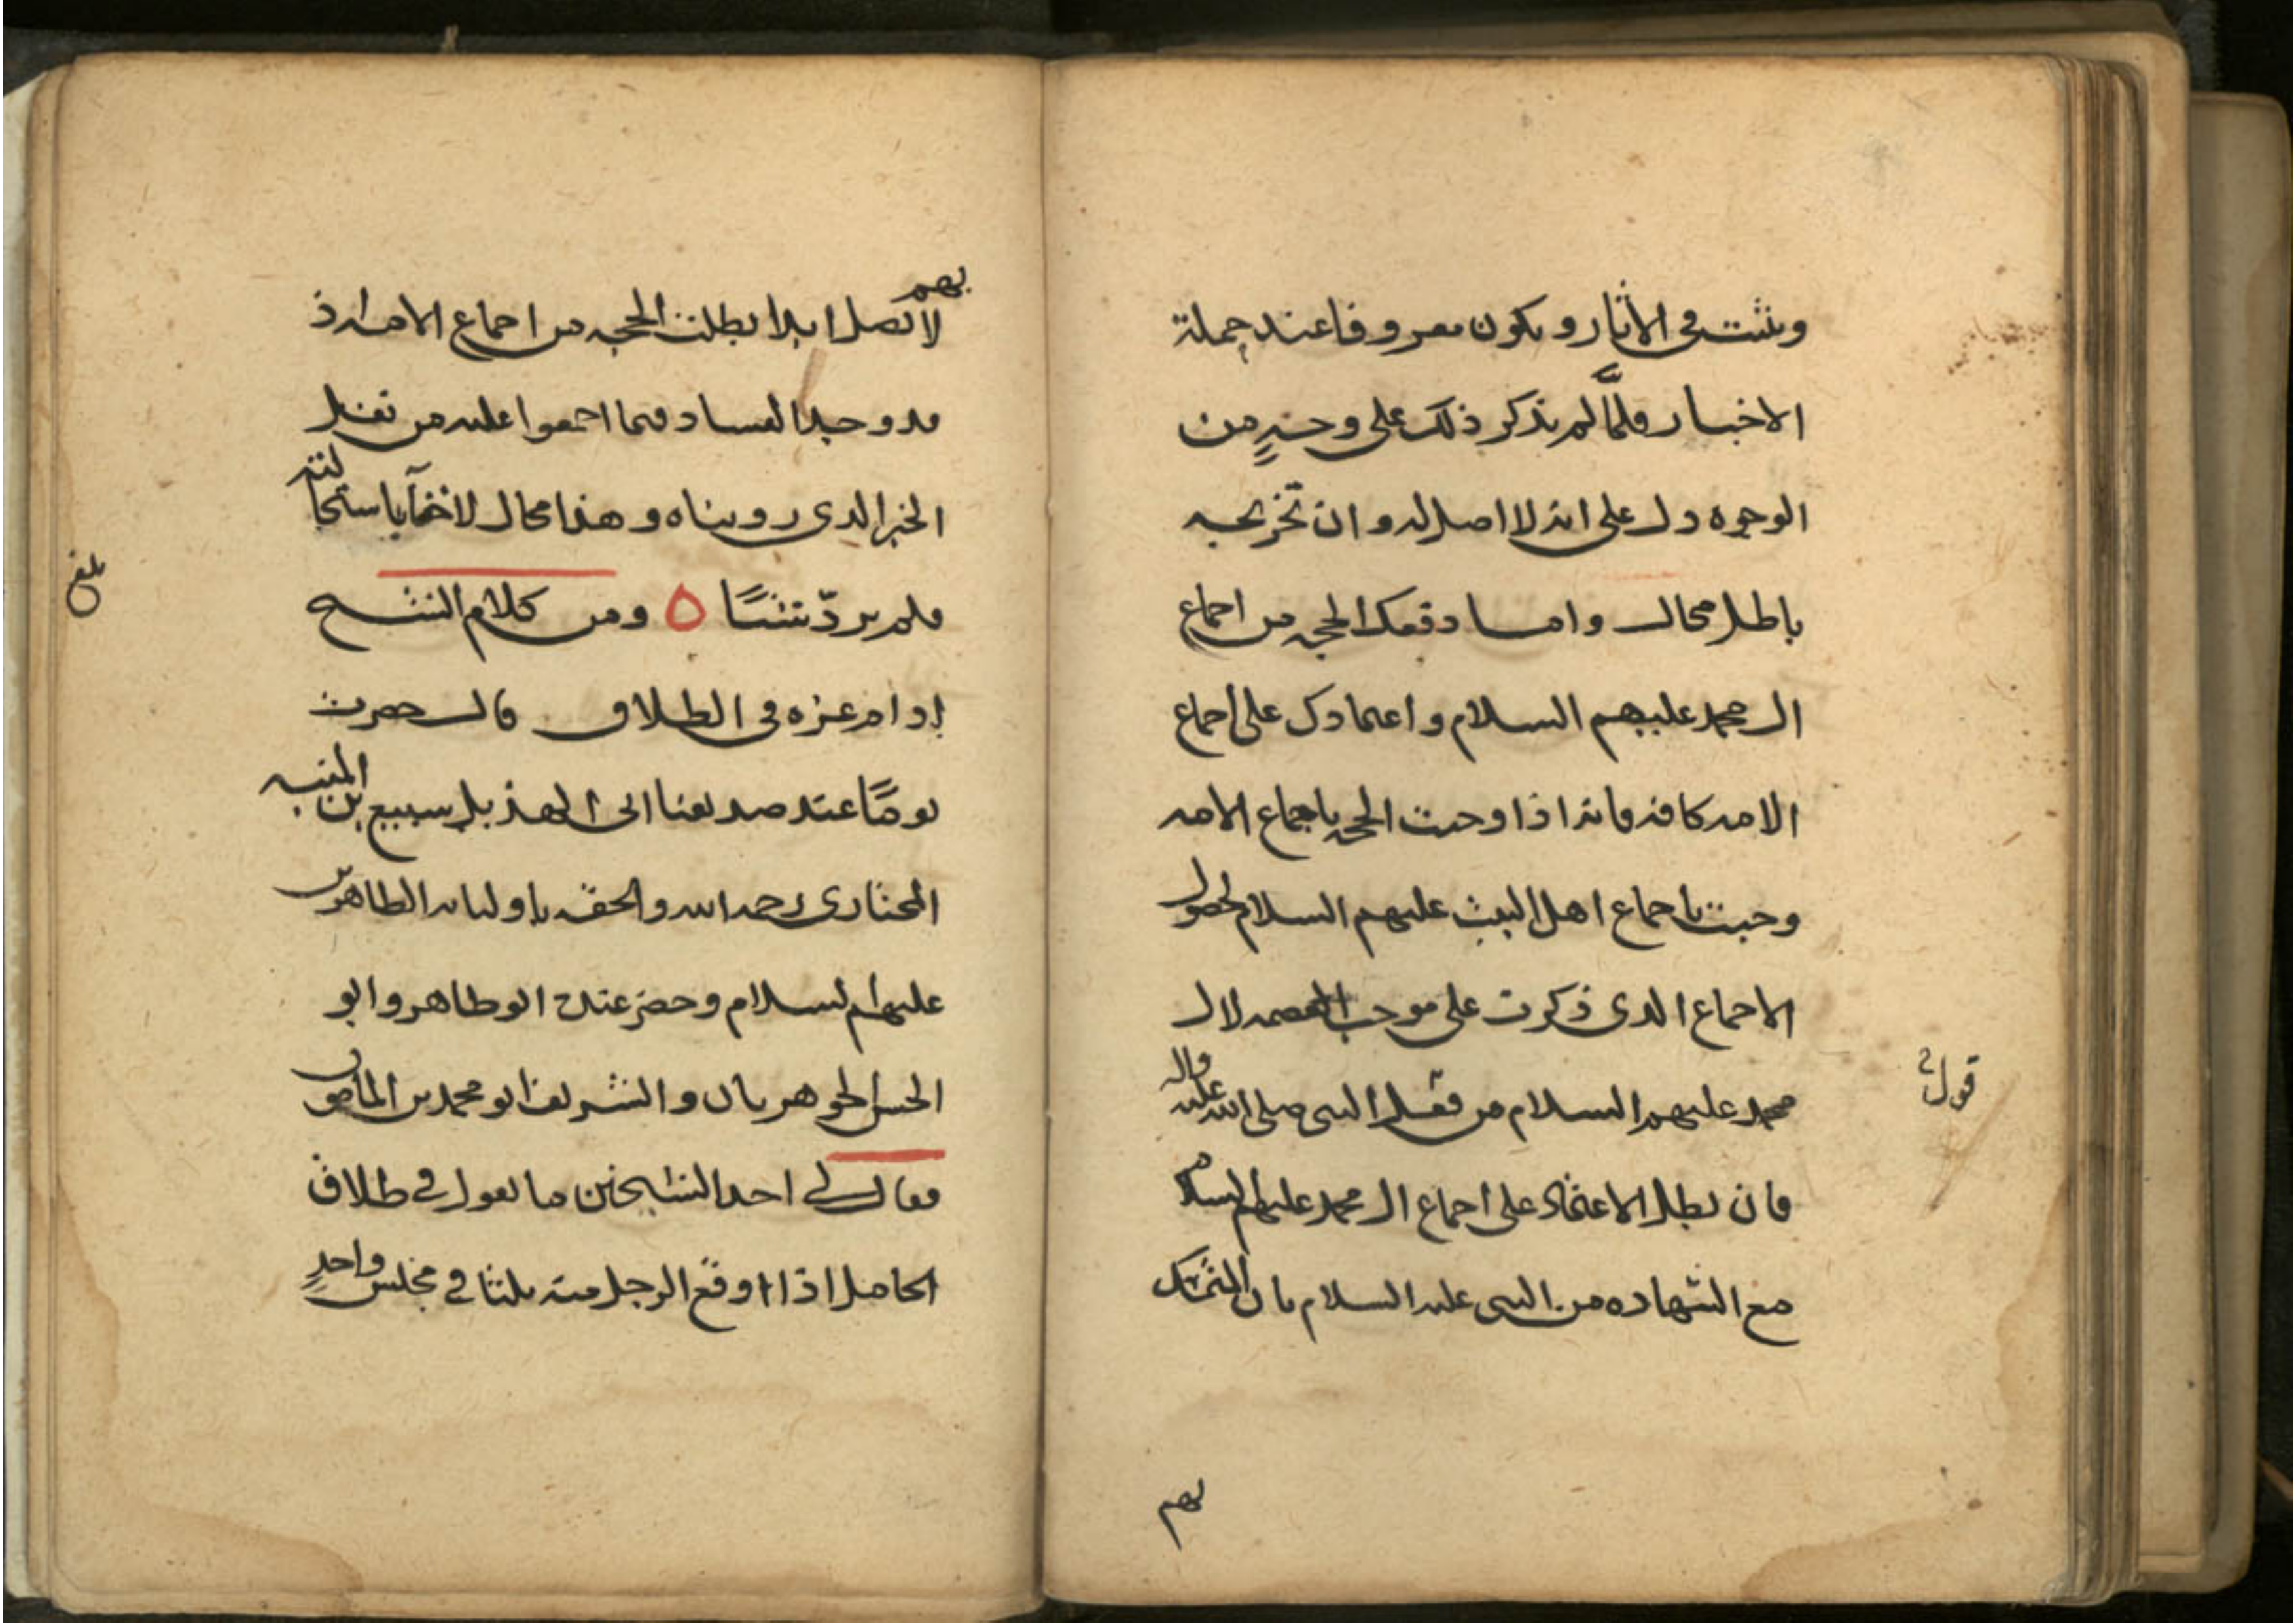 ويثبت في الآثار ويكون معروفا عند حملة
الاخبار فلمّا لم يذكر ذلك على وجهٍ من
الوجوه دل على انه لا اصل له وان تخريجه
باطل محال واما دفعك الحجه من اجماع
ال محمد عليهم السلام واعتمادك على اجماع
الامه كافه فانه اذا وجبت الحجه باجماع الامه
وجبت باجماع اهل البيت عليهم السلام لحصول
الاجماع الذى ذكرت على موجب العصمه لال
محمد عليهم السلام من قول النبى صلى الله عليه واله
قول
فان بطل الاعتماد على اجماع ال محمد عليهم السلام
مع الشهاده من النبى عليه السلام بان التمسك
بهم
بهم
لا يضل ابدا بطلت الحجه من اجماع الامه اذ
قد وجد الفساد فيما اجمعوا عليه من نقل
الخبر الذى رويناه وهذا محال لا خفآ باستحالته
فلم يردّ شيئًا ٥ ومن كلام الشيخ
بلغ
ادام عزه في الطلاق قال حضرت
يومًا عند صديقنا ابى الهذيل سبيع بن المنبه
المختارى رحمه الله والحقه باوليائه الطاهرين
عليهم السلام وحضر عنده ابو طاهر وابو
الحسن الجوهريان والشريف ابو محمد بن المامون
فقال لى احد الشيخين ما تقول في طلاق
الحامل اذا اوقع الرجل منه ثلثا في مجلس واحدٍ